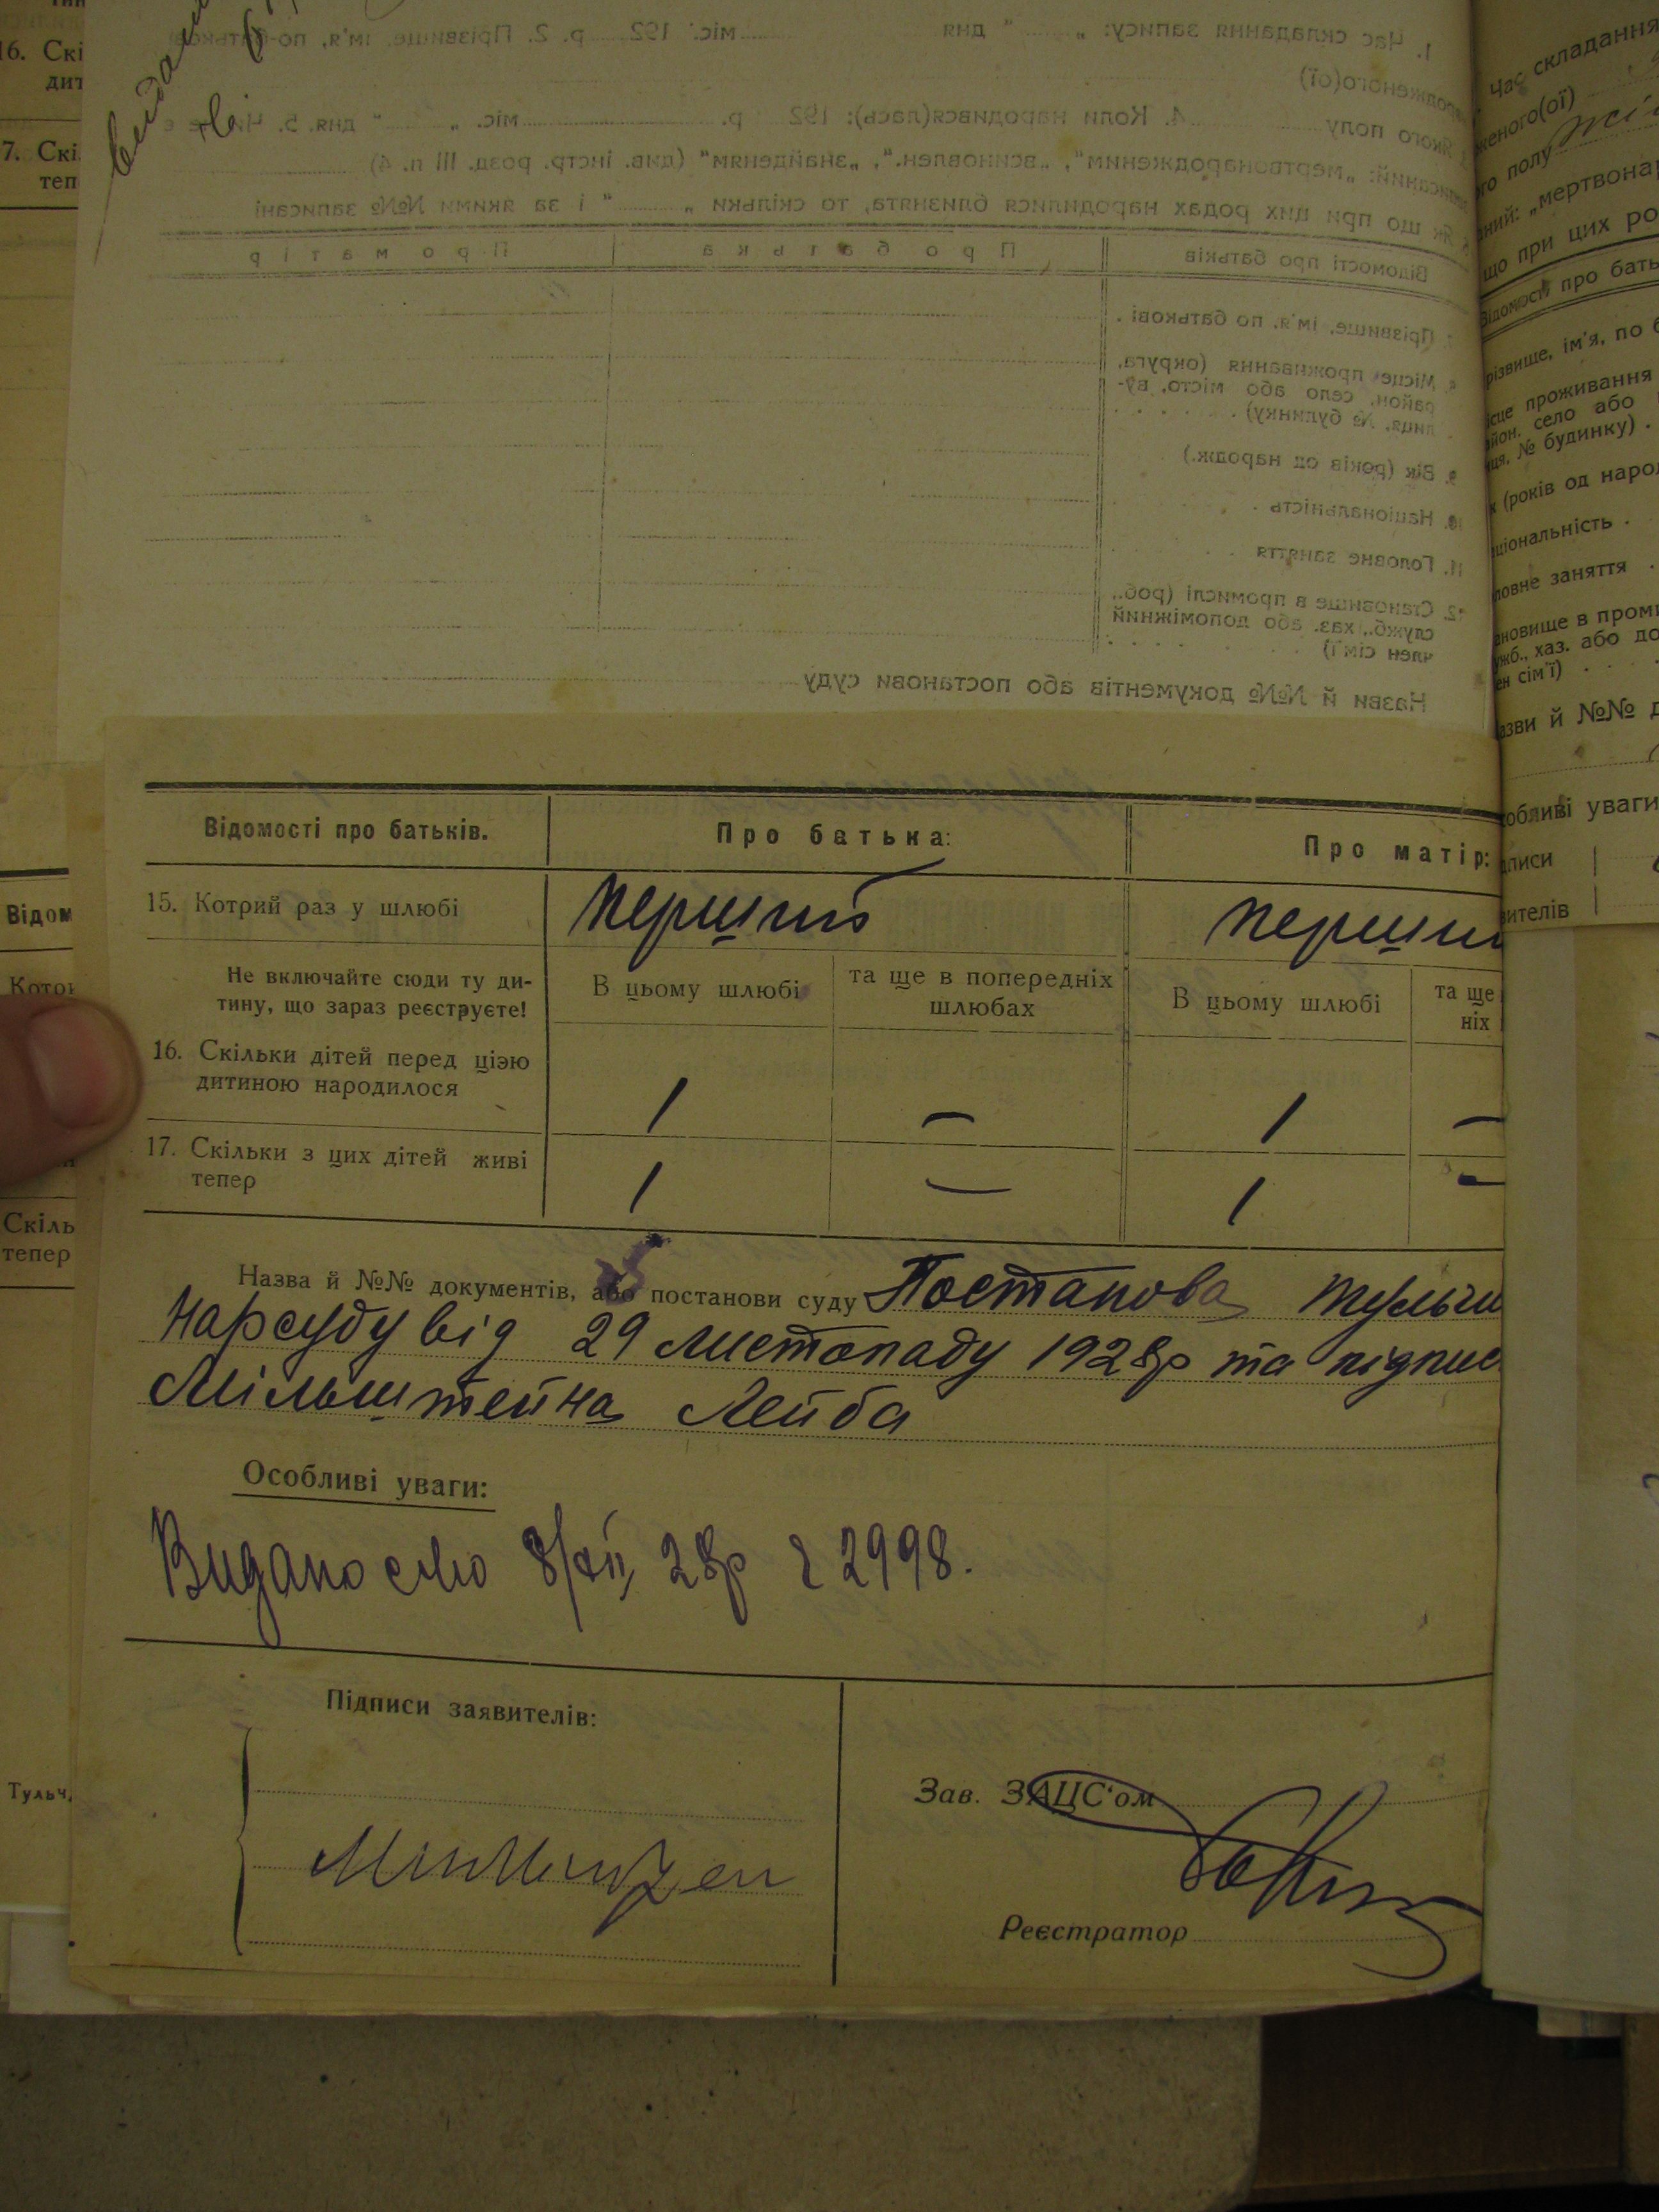 16. Скі
дит
7. Скі
теп
видан
1. Час складання запису: „ “ дня міс. 192 р. 2. Прізвище, ім'я, по-батькові
народженого(ої)
3. Якого полу 4. Коли народився(лась): 192 р. міс. „ “ дня. 5. Чи не є
записаний: „мертвонародженим“, „всиновлен.“, „знайденим“ (див. інстр. розд. III п. 4)
6. Як що при цих родах народилися близнята, то скільки „ “ і за якими №№ записані
Відомості про батьків Про батька Про матір
7. Прізвище, ім'я, по батькові
8. Місце проживання (округа,
район, село або місто, ву-
лиця, № будинку)
9. Вік (років од народж.)
10. Національність
11. Головне заняття
12. Становище в промислі (роб.,
служб., хаз. або допоміжний
член сім'ї)
Назви й №№ документів або постанови суду
Час складання
женого(ої)
го полу
ний: „мертвонар
що при цих ро
Відомості про бать
різвище, ім'я, по б
ісце проживання
айон, село або
ця, № будинку)
к (років од народ
ціональність
ловне заняття
ановище в проми
ужб., хаз. або до
ен сім'ї)
азви й №№ д
обливі уваги
дписи
вителів
Відомості про батьків. Про батька: Про матір:
15. Котрий раз у шлюбі перший перши
Не включайте сюди ту ди-
тину, що зараз реєструєте!
В цьому шлюбі та ще в попередніх
шлюбах
В цьому шлюбі та ще
ніх
16. Скільки дітей перед цією
дитиною народилося 1 – 1 –
17. Скільки з цих дітей живі
тепер 1 – 1 –
Назва й №№ документів, або постанови суду Постанова Тульчи
Нарсуду від 29 листопаду 1928р та підпис
Мільштейна Лейба
Особливі уваги:
Видано 8/XII, 28р 2998.
Підписи заявителів:
Зав. ЗАЦС'ом
Реєстратор
Відом
Котор
Скіль
тепер
Тульч.